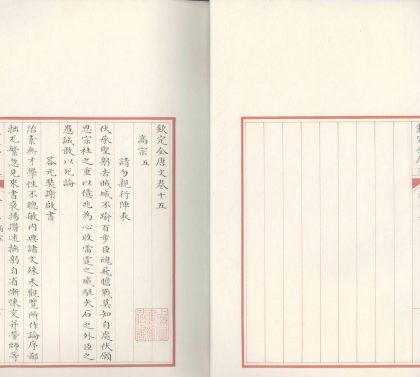 欽定全唐文卷十五
高宗五
請勿親行陣表
伏承聖躬去賊城不踰百步臣魂飛膽戰莫知自處伏願
思宗社之重以億兆為心收雷霆之威駐矢石之外臣之
愚誠敢以死論
答元奘謝啟書
治素無才學性不聰敏內典諸文殊未觀覽所作論序鄙
拙尤繁忽見來書褒揚讚述撫躬自省慚悚交并勞師等